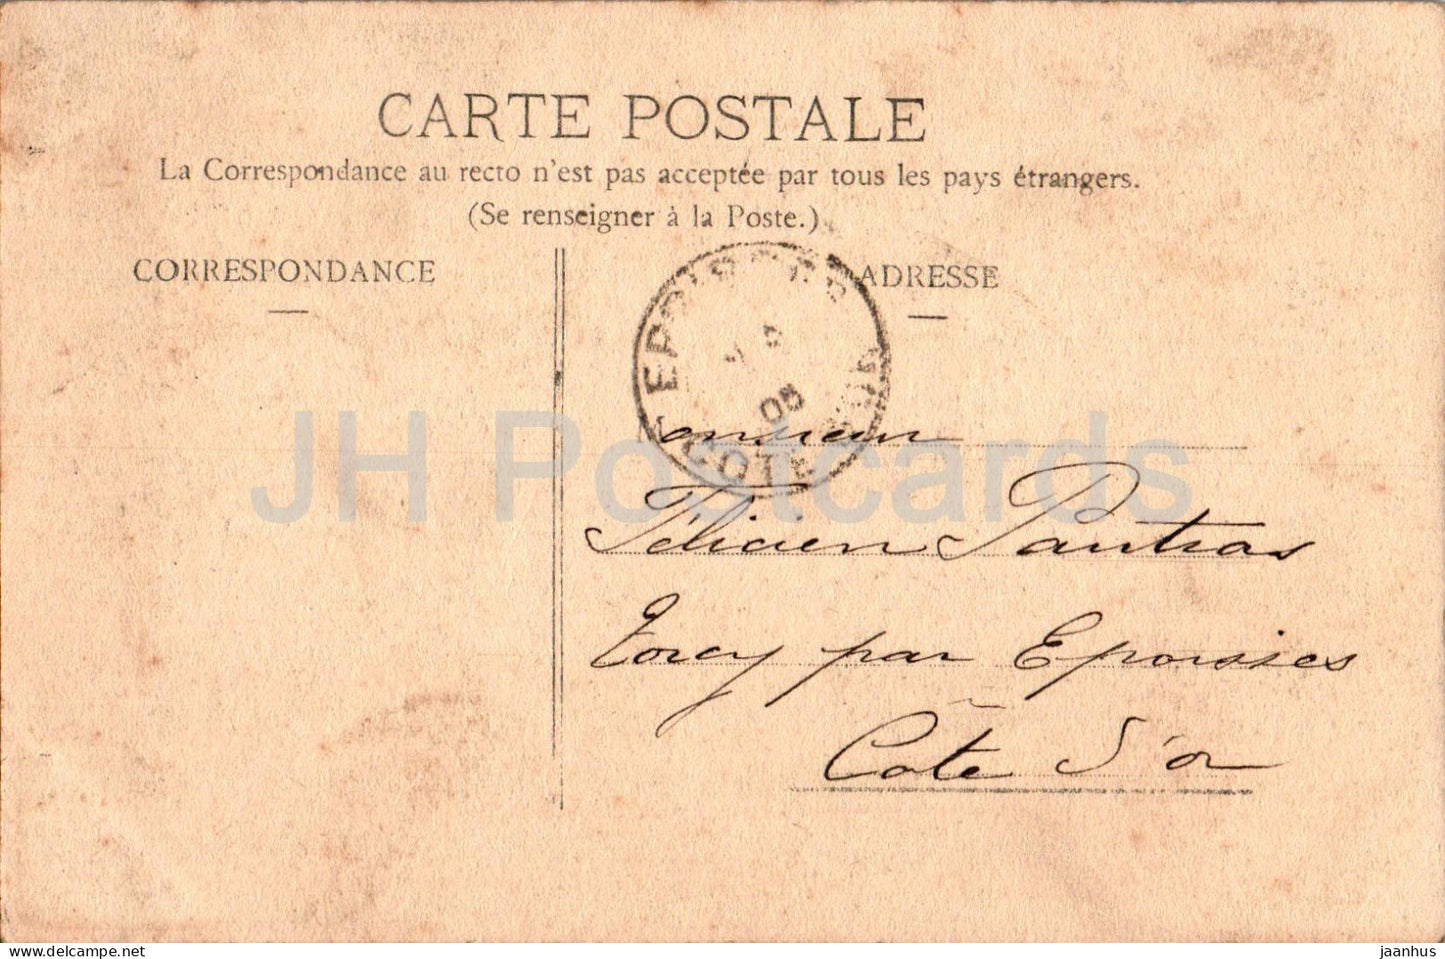 CARTE POSTALE
La Correspondance au recto n'est pas acceptée par tous les pays étrangers.
(Se renseigner à la Poste.)
CORRESPONDANCE
ADRESSE
EPOISSES
05
COTE D'OR
Monsieur
JH Postcards
Félicien Pautras
Torcy par Epoisses
Côte d'or
delcampe.net
jaanhus